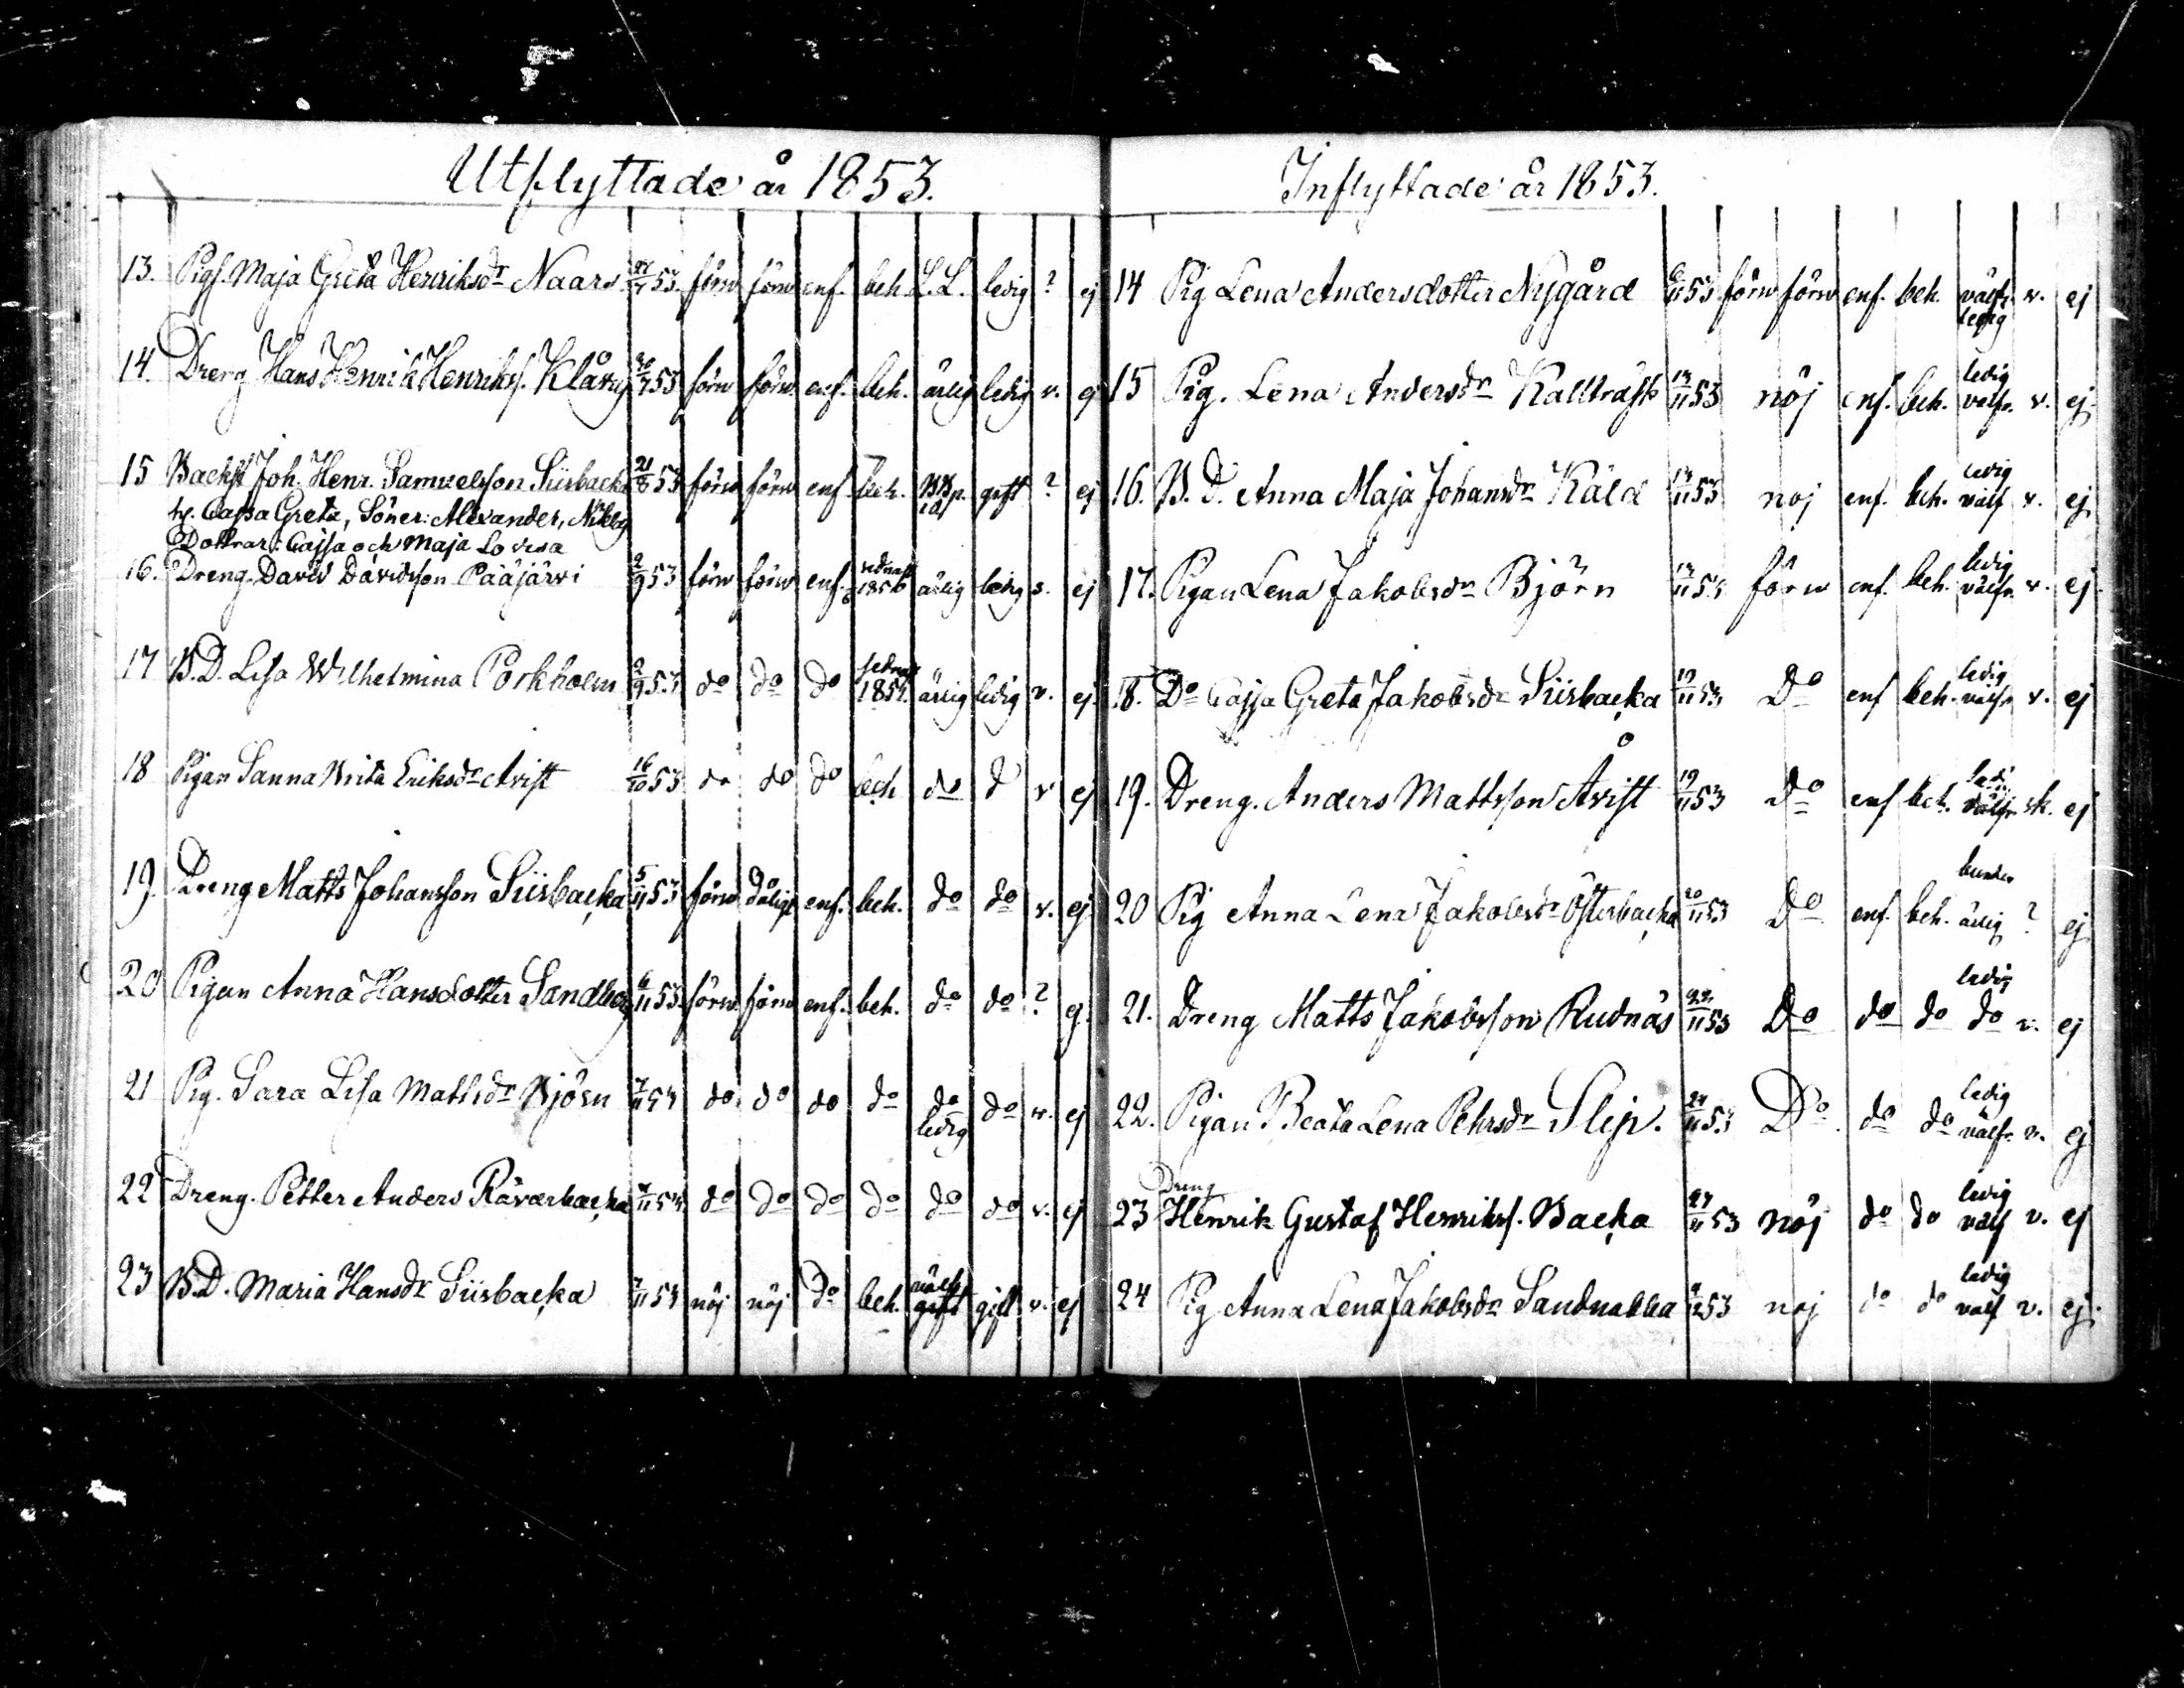 Utflyttade år 1853.
13. Pigs. Maja Greta Henriksdr Naars 53. förw förw enf. beh. L.L. ledig ? ej
14. Dreng Hans Henrik Henrikss. Klåvus 53 förw förw. enf. beh. ärlig ledig v. ej
15 Backst Joh. Henr. Samuelsson Siisbacka 21/8 53 förw förw enf beh. gift ? ej
h. Cajsa Greta, Söner: Alexander, Niklas
Döttrar: Cajsa och Maja Lovisa
16. Dreng. David Davidsson Pääjärvi 2/9 53 förw förw enf. sednast 1856 ärlig ledig s. ej
17 B.D. Lisa Wilhelmina Porkholm 2/9 53 do do do sednast 1852. ärlig ledig v. ej.
18 Pigan Sanna Brita Eriksdr Åvist 16/10 53 do do do beh do d v ej
19. Dreng Matts Johansson Siisbacka 5/11 53 förw dåligt enf. beh. do do v. ej
20 Pigan Anna Hansdotter Sandberg 6/11 53. förw. förw enf. beh. do do ? ej.
21 Pig. Sara Lisa Mattsdr Björn 7/11 53 do do do do do ledig do v. ej
22 Dreng. Petter Anders Råvarbacka 7/11 53 do do do do do do v. ej
23 B.D. Maria Hansdr Siisbacka 7/11 53 nöj nöj do beh. gift gill v. ej
Inflyttade år 1853.
14 Pig Lena Andersdotter Nygård 6/11 53 förw förw enf. beh. välfr. ledig v. ej
15 Pig. Lena Andersdr Kallträsk 13/11 53 nöj enf. beh. ledig välfr. v. ej.
16. B. D. Anna Maja Johansdr Käld 13/11 53 nöj enf. beh. ledig välf v. ej
17. Pigan Lena Jakobsdr Björn 13/11 53 förw enf. beh. ledig välfr. v. ej.
18. Do Cajsa Greta Jakobsdr Siisbacka 19/11 53 Do enf beh. ledig välfr v. ej
19. Dreng. Anders Mattsson Åvist 19/11 53 do enf beh. ledi välfr. sk. ej
20 Pig Anna Lena Jakobsdr Österbacka 20/11 53 Do enf. beh. bunden ärlig ? ej
21. Dreng Matts Jakobsson Rudnäs 22/11 53 Do do do ledig do v. ej
22. Pigan Beata Lena Pehrsdr Slip. 24/11 53 Do do do ledig välfr v. ej
23 Dreng Henrik Gustaf Henrikss. Backa 27/11 53 nöj do do ledig välf v. ej
24 Pig Anna Lena Jakobsdr Sandnabba 53 nöj do do ledig välf v. ej.